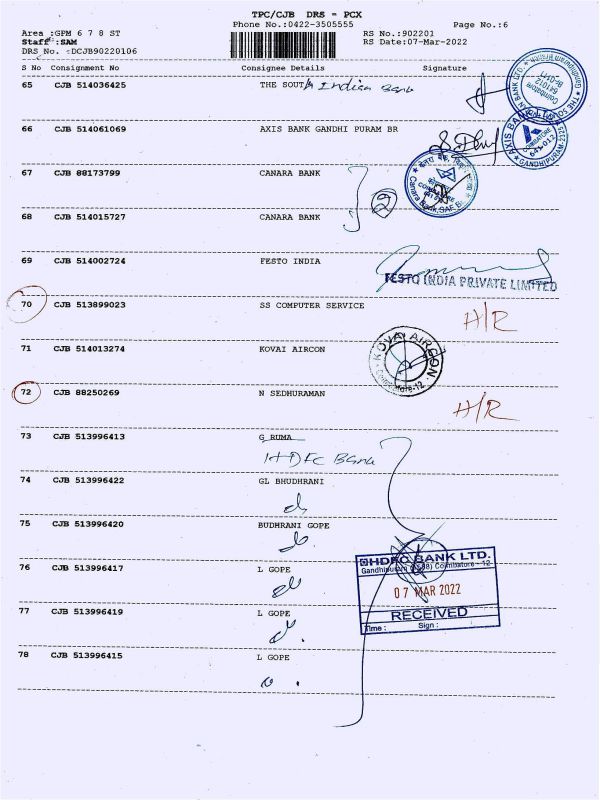 TPC/CJB DRS = PCX
Phone No.:0422-3505555 Page No.:6
Area :GPM 6 7 8 ST RS No.:902201
Staff :SAM RS Date:07-Mar-2022
DRS No. :DCJB90220106
S No Consignment No Consignee Details Signature
65 CJB 514036425 THE SOUTh Indian Bank
66 CJB 514061069 AXIS BANK GANDHI PURAM BR
AXIS BANK LTD.
COIMBATORE
641-012
GANDHIPURAM
67 CJB 88173799 CANARA BANK
2
68 CJB 514015727 CANARA BANK
69 CJB 514002724 FESTO INDIA
FESTO INDIA PRIVATE LIMITED
70 CJB 513899023 SS COMPUTER SERVICE
H/R
71 CJB 514013274 KOVAI AIRCON
KOVAI AIRCON
Coimbatore-12
72 CJB 88250269 N SEDHURAMAN
H/R
73 CJB 513996413 G RUMA
HDFC Bank
74 CJB 513996422 GL BHUDHRANI
75 CJB 513996420 BUDHRANI GOPE
HDFC BANK LTD.
Gandhipuram Coimbatore - 12
76 CJB 513996417 L GOPE
07 MAR 2022
RECEIVED
77 CJB 513996419 L GOPE
Time : Sign :
78 CJB 513996415 L GOPE